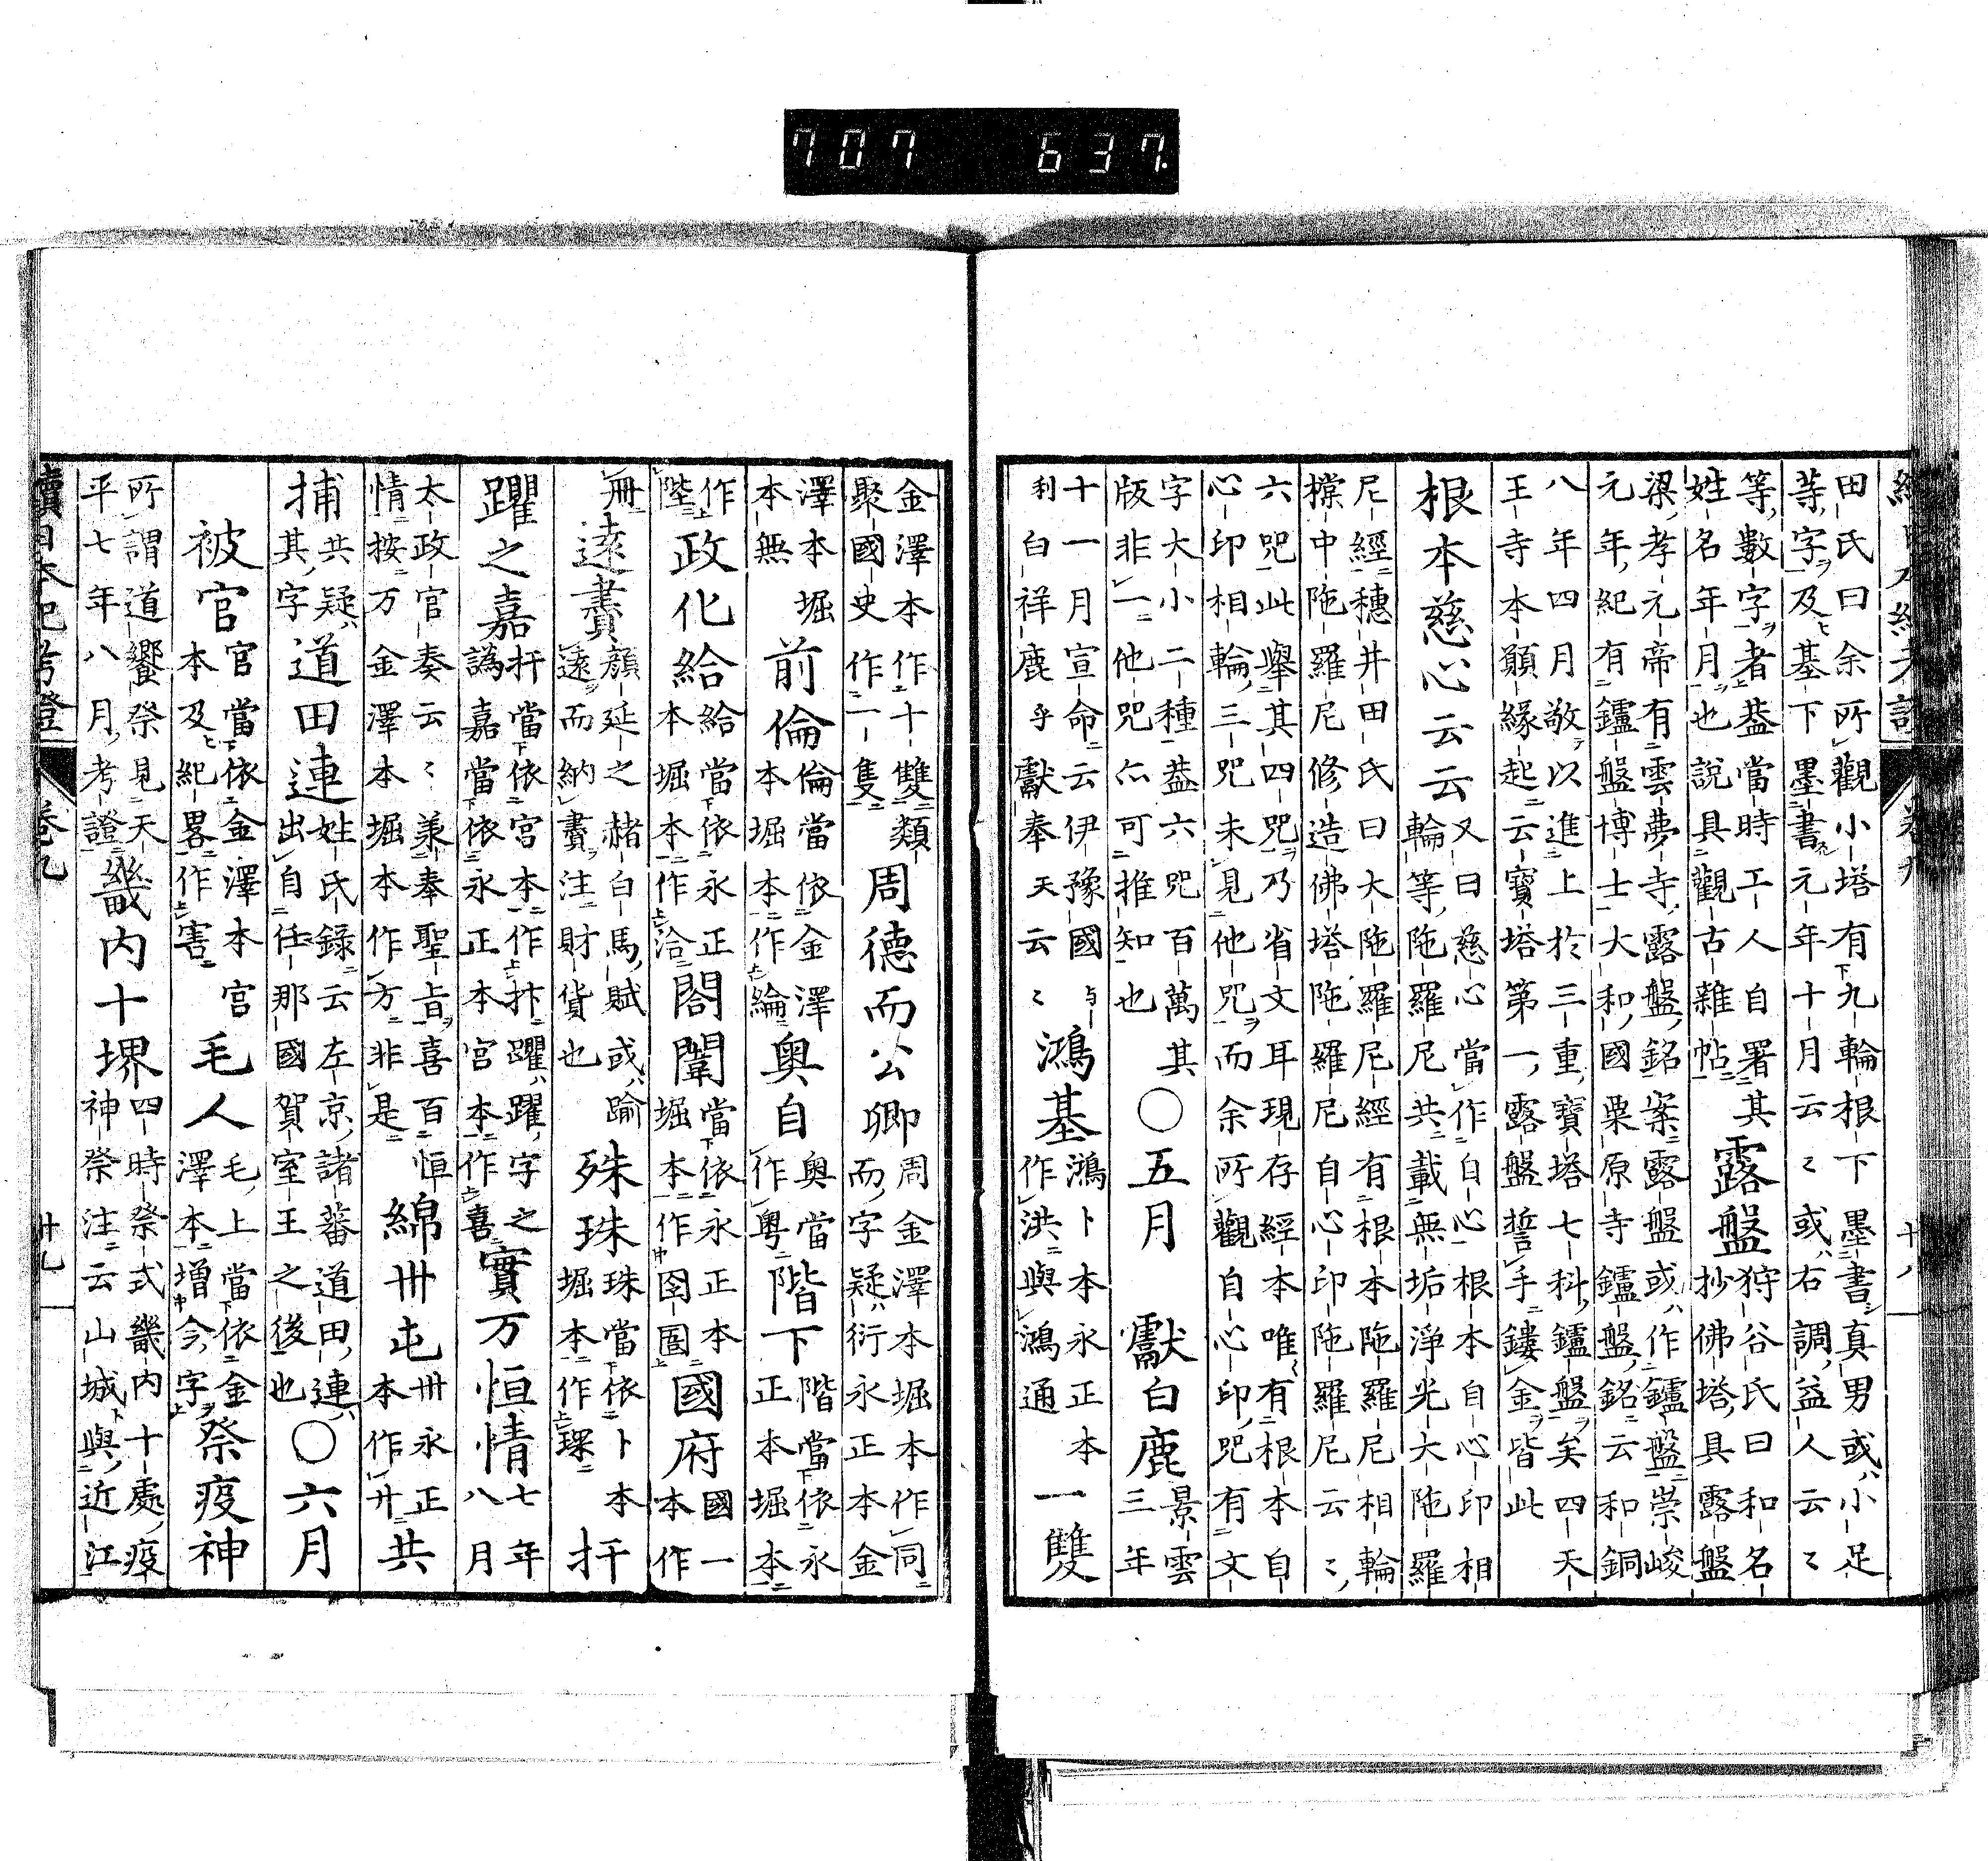 707 637.
田氏曰余所觀小塔有九輪根下墨書真男或ハ小足
等字及基下墨書元年十月云々或ハ右調益人云々
等數字者蓋當時工人自署其
姓名年月也說具觀古雜帖
露盤
狩谷氏曰和名
抄佛塔具露盤
梁孝元帝有雲夢寺露盤銘案露盤或ハ作鑪盤崇峻
元年紀有鑪盤博士大和國栗原寺鑪盤銘云和銅
八年四月敬以進上於三重寶塔七科鑪盤矣四天
王寺本願緣起云寶塔第一露盤誓手鏤金皆此
根本慈心云云
又曰慈心當作自心根本自心印相
輪等陁羅尼共載無垢淨光大陁羅
尼經穗井田氏曰大陁羅尼經有根本陁羅尼相輪
橖中陁羅尼修造佛塔陁羅尼自心印陁羅尼云々
六咒此舉其四咒乃省文耳現存經本唯有根本自
心印相輪三咒未見他咒而余所觀自心印咒有文
字大小二種蓋六咒百萬其
版非一他咒亦可推知也
○五月
獻白鹿
景雲
三年
十一月宣命云伊豫國与
利白祥鹿乎獻奉天云々
鴻基
鴻卜本永正本
作洪與鴻通
一雙
金澤本作十雙類
聚國史作一隻
周德而公卿
周金澤本堀本作同
而字疑ハ衍永正本金
澤本堀
本無
前倫
倫當依金澤
本堀本作綸
奥自
奥當
作粵
階下
階當依永
正本堀本
作
陛
政化給
給當依永正
本堀本作洽
閤闈
當依永正本
堀本作囹圄
國府
國一
本作
冊
遠賮
顏延之赭白馬賦或ハ踰
遠而納賮注財貨也
殊珠
珠當依卜本
堀本作琛
扞
躍之嘉
扞當依宮本作抃躍ハ躍字之
譌嘉當依永正本宮本作喜
實万恒情
七年
八月
太政官奏云々羕奉聖旨喜百恒
情按万金澤本堀本作方非是
綿卅屯
卅永正
本作廾
共
捕
共疑ハ
其字
道田連
姓氏錄云左京諸蕃道田連ハ
出自任那國賀室王之後也
○六月
被官
官當依金澤本宮
本及紀畧作害
毛人
毛上當依金
澤本增今字
祭疫神
所謂道饗祭見天
平七年八月考證
畿内十堺
四時祭式畿内十處疫
神祭注云山城與近江
續日本紀考證
卷九
廿九